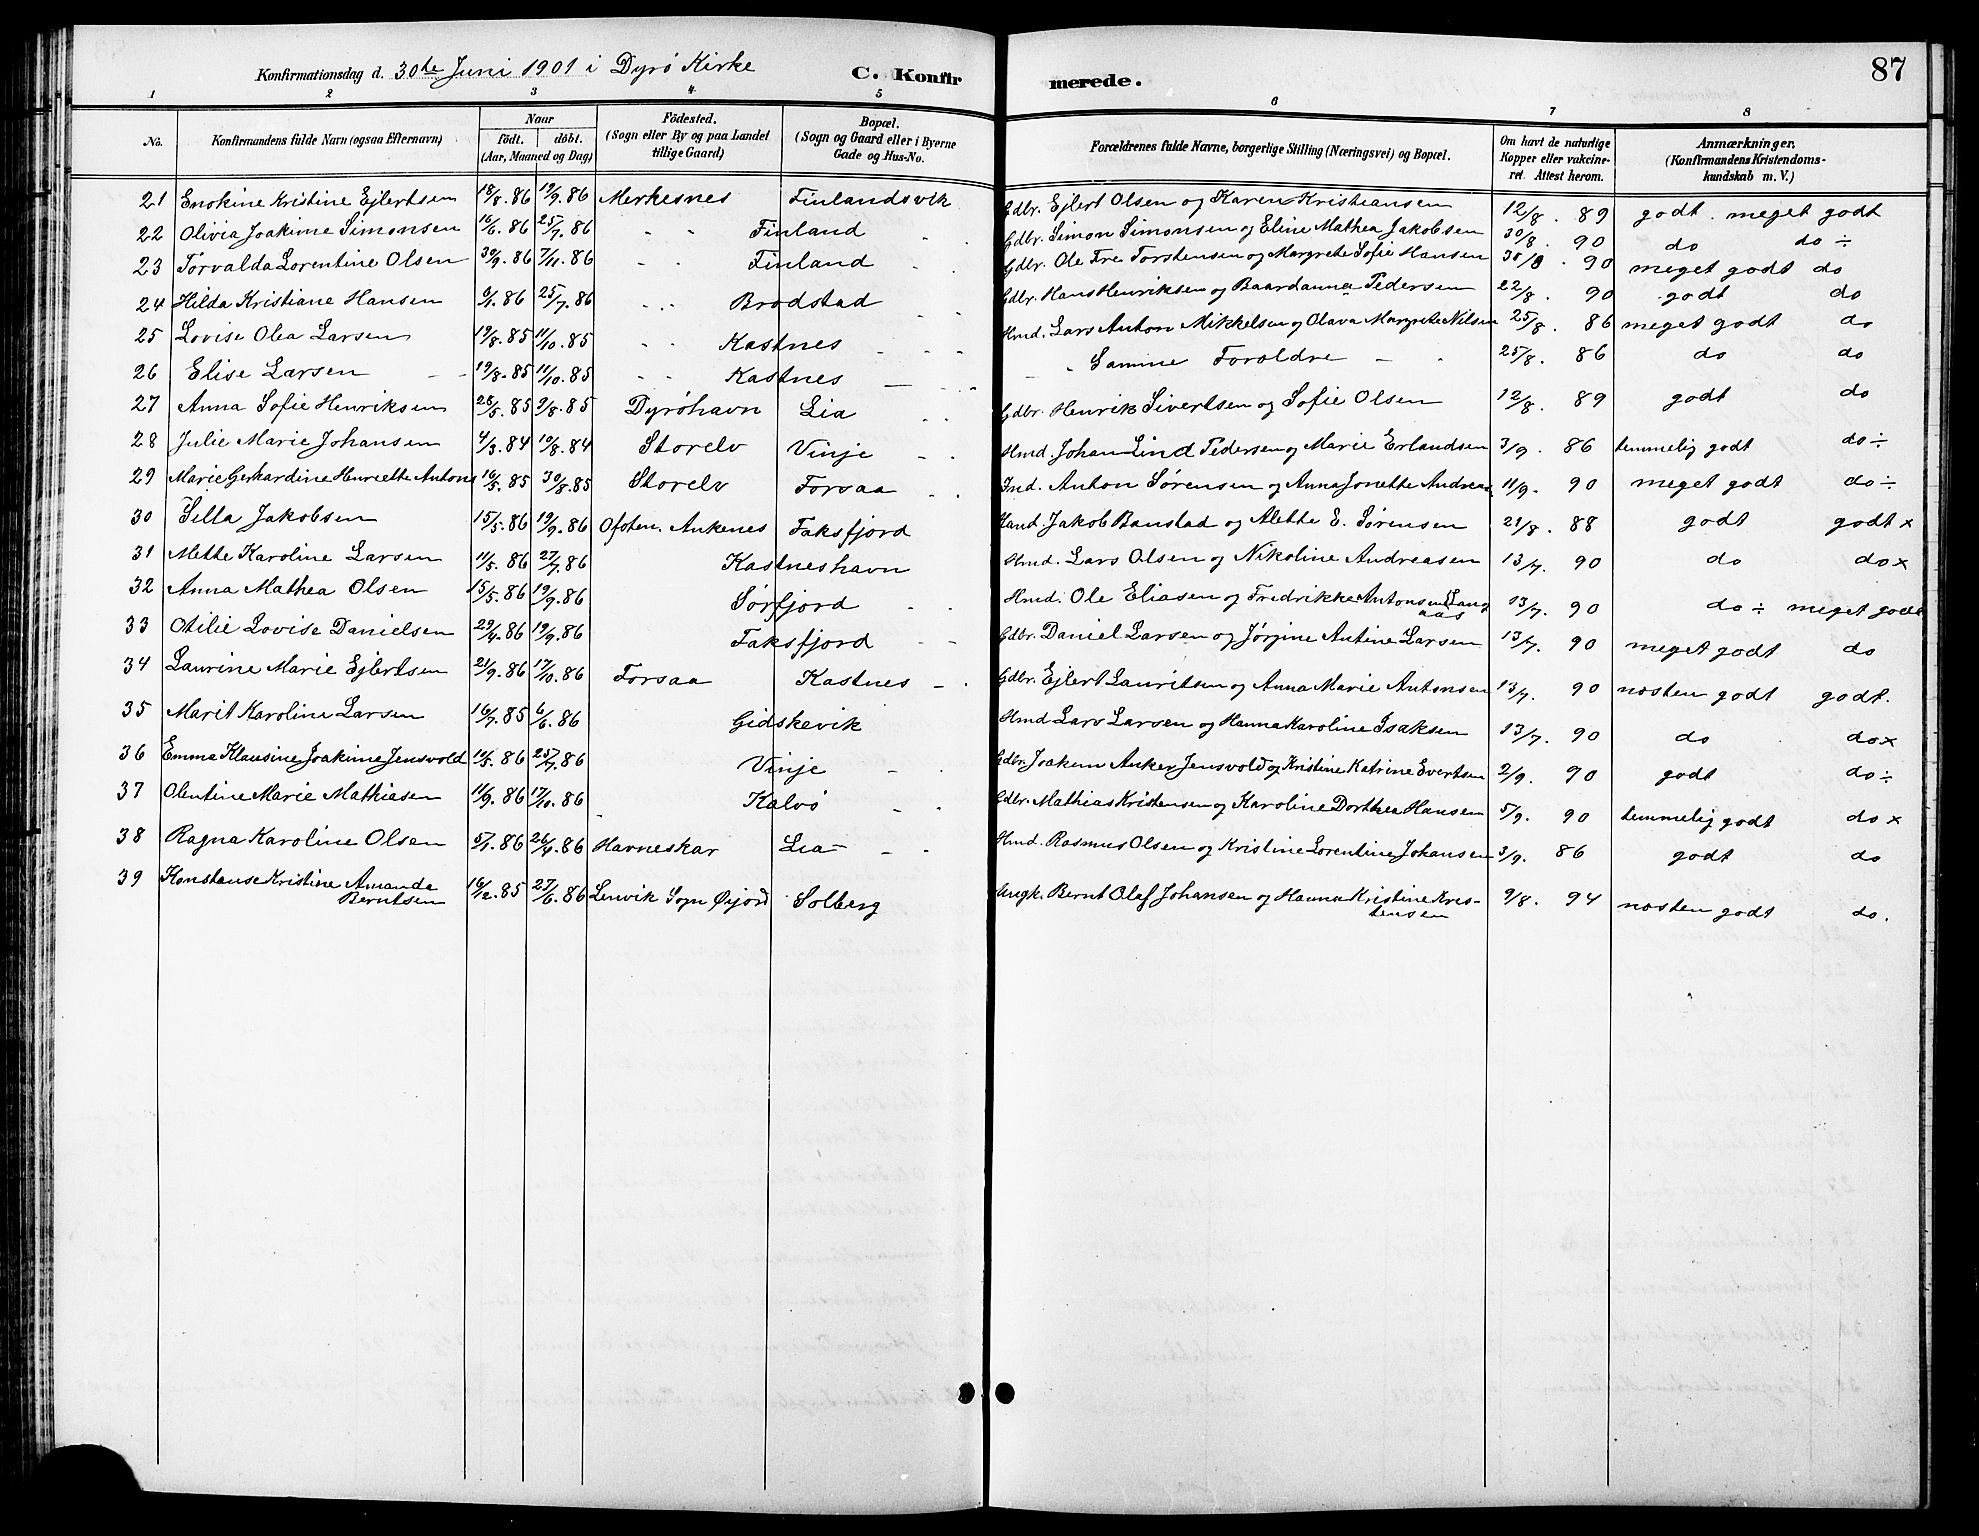 Konfirmationsdag d. 30te Juni 1901 i Dyrø Kirke C. Konfirmerede. 87
1 2 3 4 5 6 7 8
No. Konfirmandens fulde Navn (ogsaa Efternavn) Naar født. døbt. (Aar, Maaned og Dag) Fødested. (Sogn eller By og paa Landet tillige Gaard) Bopæl. (Sogn og Gaard eller i Byerne Gade og Hus-No. Forældrenes fulde Navne, borgerlige Stilling (Næringsvei) og Bopæl. Om havt de naturlige Kopper eller vakcineret. Attest herom. Anmærkninger, (Konfirmandens Kristendomskundskab m. V.)
21 Enokine Kristine Ejlertsen 18/8. 86 19/9. 86 Merkesnes Finlandsvik Gdbr. Ejlert Olsen og Karen Kristiansen 12/8. 89 godt. meget godt
22 Olivia Joakime Simonsen 16/6. 86 25/7. 86 " " Finland Gdbr. Simon Simonsen og Eline Mathea Jakobsen 30/8. 90 do do ÷
23 Torvalda Lorentine Olsen 30/9. 86 7/11. 86 " " Finland Gdbr. Ole Fre Torstensen og Margrete Sofie Hansen 30/8. 90 meget godt do
24 Hilda Kristiane Hansen 6/1. 86 25/7. 86 " " Brodstad Gdbr. Hans Henriksen og Baardanna Pedersen 22/8. 90 godt do
25 Lovise Olea Larsen 19/8. 85 11/10. 85 " " Kastnes Hmd. Lars Anton Mikkelsen og Olava Margrete Nilsen 25/8. 86 meget godt do
26 Elise Larsen 19/8. 85 11/10. 85 " " Kastnes Samme Foroldre 25/8. 86 do do
27 Anna Sofie Henriksen 28/5. 85 9/8. 85 Dyrøhavn Lia Gdbr. Henrik Sivertsen og Sofie Olsen 12/8. 89 godt do
28 Julie Marie Johansen 4/3. 84 10/8. 84 Storelv Vinje Hmd. Johan Lind Pedersen og Marie Erlandsen 3/9. 86 temmelig godt do ÷
29 Marie Gerhardine Henriette Antons 16/5. 85 30/8. 85 Storelv Forsaa Ind. Anton Sørensen og Anna Jonette Andreas 11/9. 90 meget godt do ÷
30 Silla Jakobsen 15/5. 86 19/9. 86 Ofoten. Ankenes Faksfjord Hmd. Jakob Banstad og Alette E. Sørensen 21/8. 88 godt godt x
31 Mette Karoline Larsen 11/5. 86 27/7. 86 Kastneshavn Hmd. Lars Olsen og Nikoline Andreasen 13/7. 90 do do x
32 Anna Mathea Olsen 15/5. 86 19/9. 86 Sørfjord Hmd. Ole Eliasen og Fredrikke Antonsen Langaas 13/7. 90 do ÷ meget godt
33 Otilie Lovise Danielsen 29/4. 86 19/9. 86 Faksfjord Gdbr. Daniel Larsen og Jørgine Antine Larsen 13/7. 90 meget godt do
34 Laurine Marie Ejlertsen 21/9. 86 17/10. 86 Forsaa Kastnes Gdbr. Ejlert Lauritsen og Anna Marie Antonsen 13/7. 90 nosten godt godt.
35 Marit Karoline Larsen 16/7. 85 6/6. 86 Gidskevik Hmd Lars Larsen og Hanna Karoline Isaksen 13/7. 90 do do x
36 Emma Klausine Joakime Jensvold 11/5. 86 25/7. 86 Vinje Gdbr. Joakim Anker Jensvold og Kristine Katrine Evertsen 2/9. 90 godt do ÷
37 Olentine Marie Mathiasen 11/9. 86 17/10. 86 Kalvø Gdbr. Mathias Kristensen og Karoline Dorthea Hansen 5/9. 90 temmelig godt do x
38 Ragna Karoline Olsen 5/1. 86 26/4. 86 Havneskar Lia Hmd. Rasmus Olsen og Kristine Lorentine Johansen 3/9. 86 godt do
39 Konstanse Kristine Amanda 16/2. 85 27/6. 86 Lenvik Sogn Øijord Solberg Ungk. Bernt Olaf Johansen og Hanna Kristine Kris- 9/8. 94 nosten godt do.
Berntsen tensen